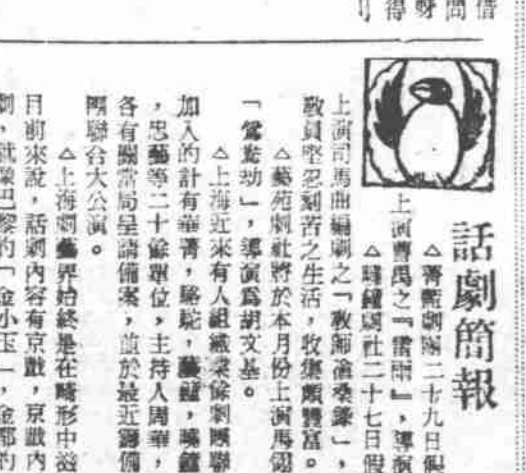 借
問
財
得
話劇簡報
△菁藝劇團二十九日假
上演曹禺之「雷雨」,導演
△曉鐘劇社二十七日假
上演司馬曲編劇之「教師滄桑錄」,
教員堅忍刻苦之生活,收集頗豐富。
△藝苑劇社將於本月份上演馬
「鴛鴦劫」,導演爲胡文基。
△上海近來有人組織業餘劇團聯
加入的計有華菁,駱駝,藝鐘,曉鐘
,忠藝等二十餘單位,主持人周華,
各有關當局呈請備案,並於最近籌備
團聯合大公演。
△上海劇藝界始終是在畸形中滋
目前來說,話劇內容有京戲,京戲內
劇,就像巴黎的「金小玉」,金都的